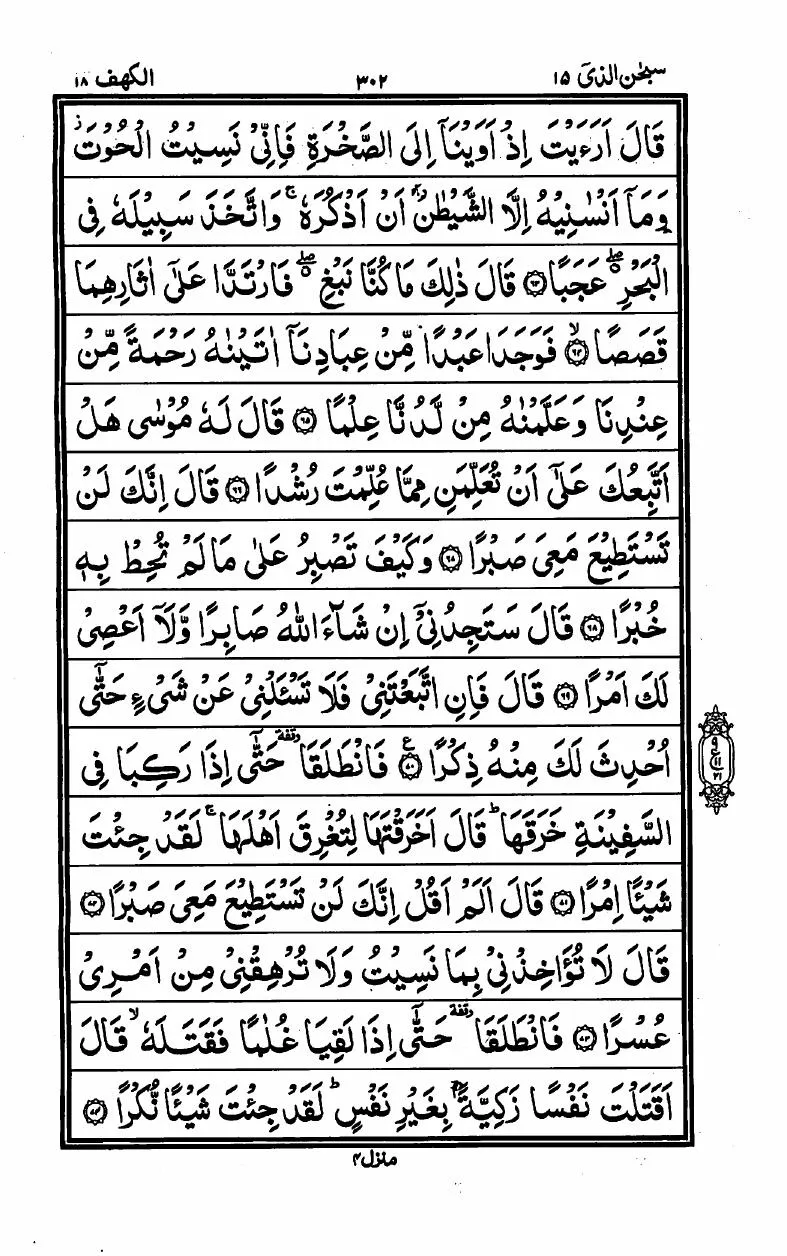 سبحٰن الذی ۱۵
۳۰۲
الکهف ۱۸
قَالَ اَرَءَیْتَ اِذْ اَوَیْنَاۤ اِلَى الصَّخْرَةِ فَاِنِّیْ نَسِیْتُ الْحُوْتَ ؗ
وَ مَاۤ اَنْسٰىنِیْهُ اِلَّا الشَّیْطٰنُ اَنْ اَذْكُرَهٗ ۚ وَ اتَّخَذَ سَبِیْلَهٗ فِی
الْبَحْرِ ۖۗ عَجَبًا ۝۶۳ قَالَ ذٰلِكَ مَا كُنَّا نَبْغِ ۖۗ فَارْتَدَّا عَلٰۤى اٰثَارِهِمَا
قَصَصًا ۝۶۴ۙ فَوَجَدَا عَبْدًا مِّنْ عِبَادِنَاۤ اٰتَیْنٰهُ رَحْمَةً مِّنْ
عِنْدِنَا وَ عَلَّمْنٰهُ مِنْ لَّدُنَّا عِلْمًا ۝۶۵ قَالَ لَهٗ مُوْسٰى هَلْ
اَتَّبِعُكَ عَلٰۤى اَنْ تُعَلِّمَنِ مِمَّا عُلِّمْتَ رُشْدًا ۝۶۶ قَالَ اِنَّكَ لَنْ
تَسْتَطِیْعَ مَعِیَ صَبْرًا ۝ وَ كَیْفَ تَصْبِرُ عَلٰى مَا لَمْ تُحِطْ بِهٖ
خُبْرًا ۝۶۸ قَالَ سَتَجِدُنِیْۤ اِنْ شَآءَ اللّٰهُ صَابِرًا وَّ لَاۤ اَعْصِیْ
لَكَ اَمْرًا ۝۶۹ قَالَ فَاِنِ اتَّبَعْتَنِیْ فَلَا تَسْـَٔلْنِیْ عَنْ شَیْءٍ حَتّٰۤى
اُحْدِثَ لَكَ مِنْهُ ذِكْرًا ۝۷۰ع فَانْطَلَقَا ۥ وقفة حَتّٰۤى اِذَا رَكِبَا فِی
السَّفِیْنَةِ خَرَقَهَا ؕ قَالَ اَخَرَقْتَهَا لِتُغْرِقَ اَهْلَهَا ۚ لَقَدْ جِئْتَ
شَیْـًٔا اِمْرًا ۝۷۱ قَالَ اَلَمْ اَقُلْ اِنَّكَ لَنْ تَسْتَطِیْعَ مَعِیَ صَبْرًا ۝۷۲
قَالَ لَا تُؤَاخِذْنِیْ بِمَا نَسِیْتُ وَ لَا تُرْهِقْنِیْ مِنْ اَمْرِیْ
عُسْرًا ۝۷۳ فَانْطَلَقَا وقفة حَتّٰۤى اِذَا لَقِیَا غُلٰمًا فَقَتَلَهٗ ۙ قَالَ
اَقَتَلْتَ نَفْسًا زَكِیَّةًۢ بِغَیْرِ نَفْسٍ ؕ لَقَدْ جِئْتَ شَیْـًٔا نُّكْرًا ۝۷۴
منزل ۴